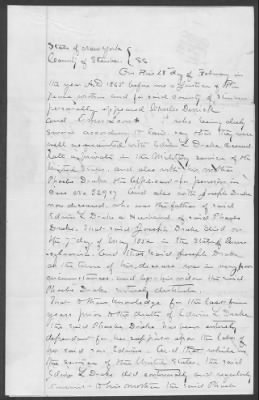 State of New York }
County of Steuben } SS
On this 28th day of February in
the year A.D. 1865 before me a Justice of the
peace within and for said County of Steuben
personally appeared Charles
and Amos who being duly
sworn according to law, say that they were
well acquainted with Edwin L Drake deceased
late a private in the Military service of the
United States, and also with his mother
Phoebe Drake the applicant for pension in
Case No. And also with Joseph Drake
now deceased, who was the father of said
Edwin L Drake & Husband of said Phoebe
Drake. That said Joseph Drake died on
the 7th day of May 1852 in the State of Penn
sylvania. And that said Joseph Drake
at the time of his decease was in very poor
circumstances and left said
Phoebe Drake entirely destitute.
That to their knowledge for the last four
years prior to the death of Edwin L Drake
the said Phoebe Drake has been entirely
dependent for her support upon the labor of
said son Edwin. And that while in
the service of the United States, the said
Edwin L Drake did continually and regularly
to his mother the said Phoebe